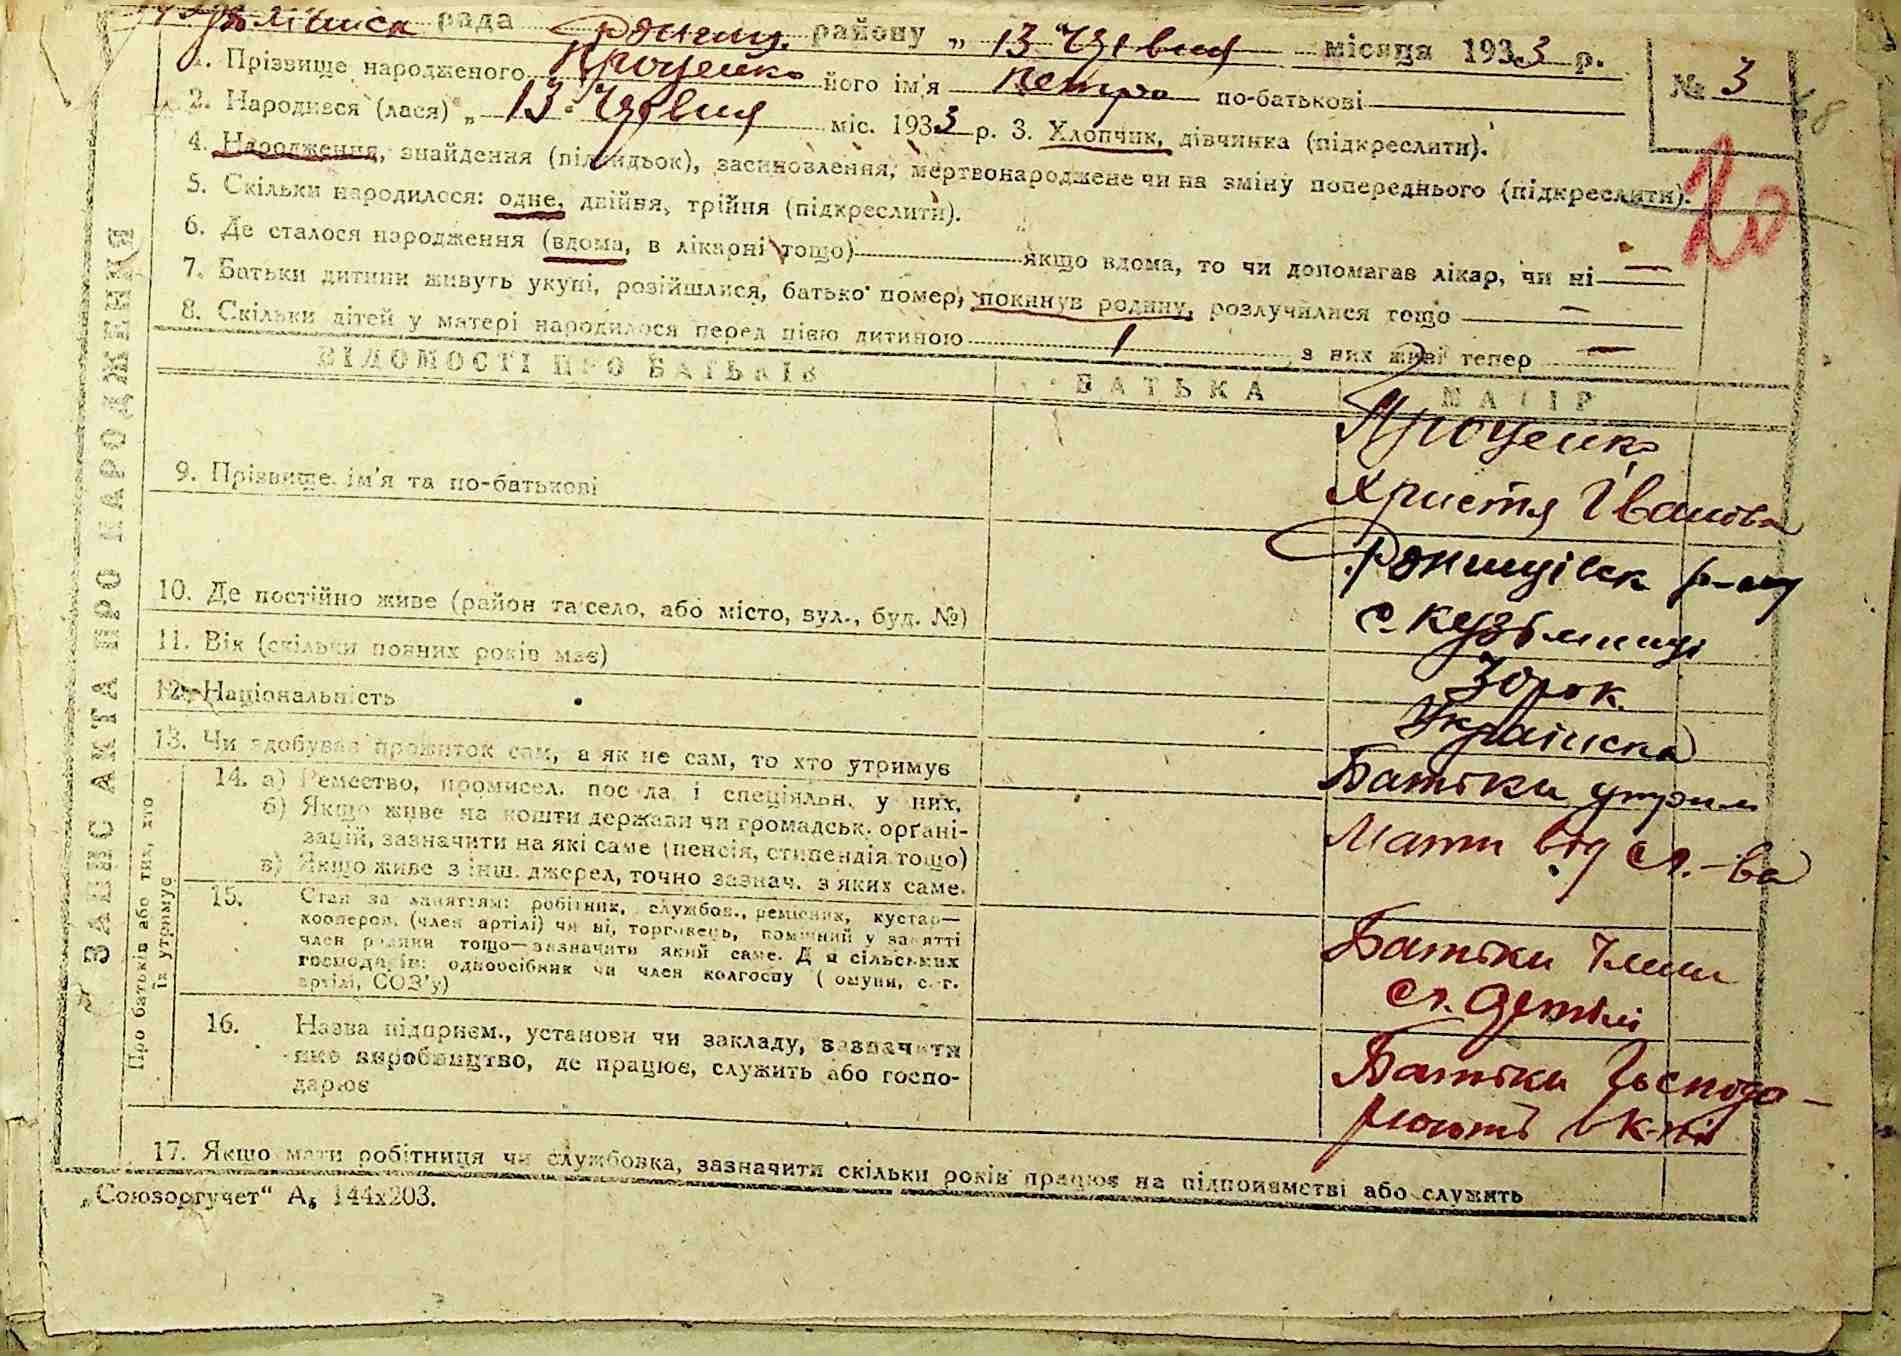 рада Рокищ. району „ 13 " Червня місяця 1933 р.
1. Прізвище народженого Проценко його ім'я Петро по-батькові
№ 3
2. Народився (лася) „ 13 " Червня міс. 1933 р. 3. Хлопчик, дівчинка (підкреслити).
4. Народження, знайдення (підкидьок), засиновлення, мертвонароджене чи на зміну попереднього (підкреслити).
20
5. Скільки народилося: одне, двійня, трійня (підкреслити).
6. Де сталося народження (вдома, в лікарні тощо) якщо вдома, то чи допомагав лікар, чи ні —
7. Батьки дитини живуть укупі, розійшлися, батько помер, покинув родину, розлучилися тощо —
8. Скільки дітей у матері народилося перед цією дитиною 1, з них живі тепер —
ЗАПИС АКТА ПРО НАРОДЖЕННЯ
ВІДОМОСТІ ПРО БАТЬКІВ БАТЬКА МАТІР
9. Прізвище, ім'я та по-батькові Проценко
Христя Іванова
10. Де постійно живе (район та село, або місто, вул., буд. №)
с. Кузьминці
11. Вік (скільки повних років має) 30 рок.
12. Національність Українска
13. Чи здобував прожиток сам, а як не сам, то хто утримує Батьки утрим
Про батьків або тих, хто їх утримує
14. а) Ремество, промисел, посада і спеціяльн. у них.
б) Якщо живе на кошти держави чи громадськ. органі-
зацій, зазначити на які саме (пенсія, стипендія тощо)
в) Якщо живе з інш. джерел, точно зазнач. з яких саме.
Мати від с.-ва
15. Стан за заняттям: робітник, службов., ремісник, кустар—
кооперов. (член артілі) чи ні, торговець, помічний у занятті
член родини тощо—зазначити який саме. Для сільських
господарів: одноосібник чи член колгоспу (комуни, с.-г.
артілі, СОЗ'у)
Батьки члени
с. артілі
16. Назва підприєм., установи чи закладу, зазначити
яке виробництво, де працює, служить або госпо-
дарює
Батьки Господо-
рюють в к-пі
17. Якщо мати робітниця чи службовка, зазначити скільки років працює на підприємстві або служить
„Союзоргучет" А₅ 144х203.